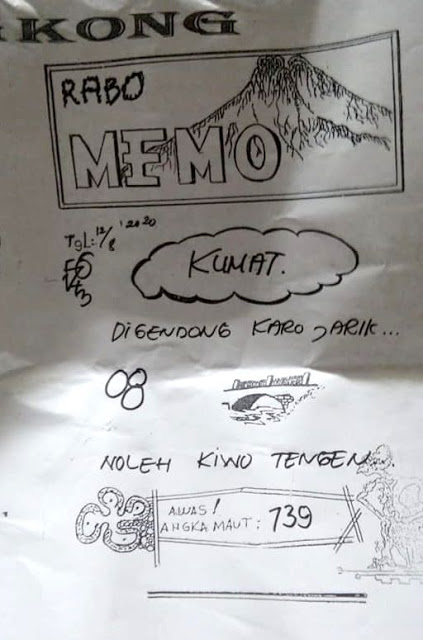 KONG
RABO
MEMO
TgL: 12/8 '2020
KUMAT.
DIGENDONG KARO JARIK...
08
NOLEH KIWO TENGEN..
AWAS!
ANGKA MAUT: 739